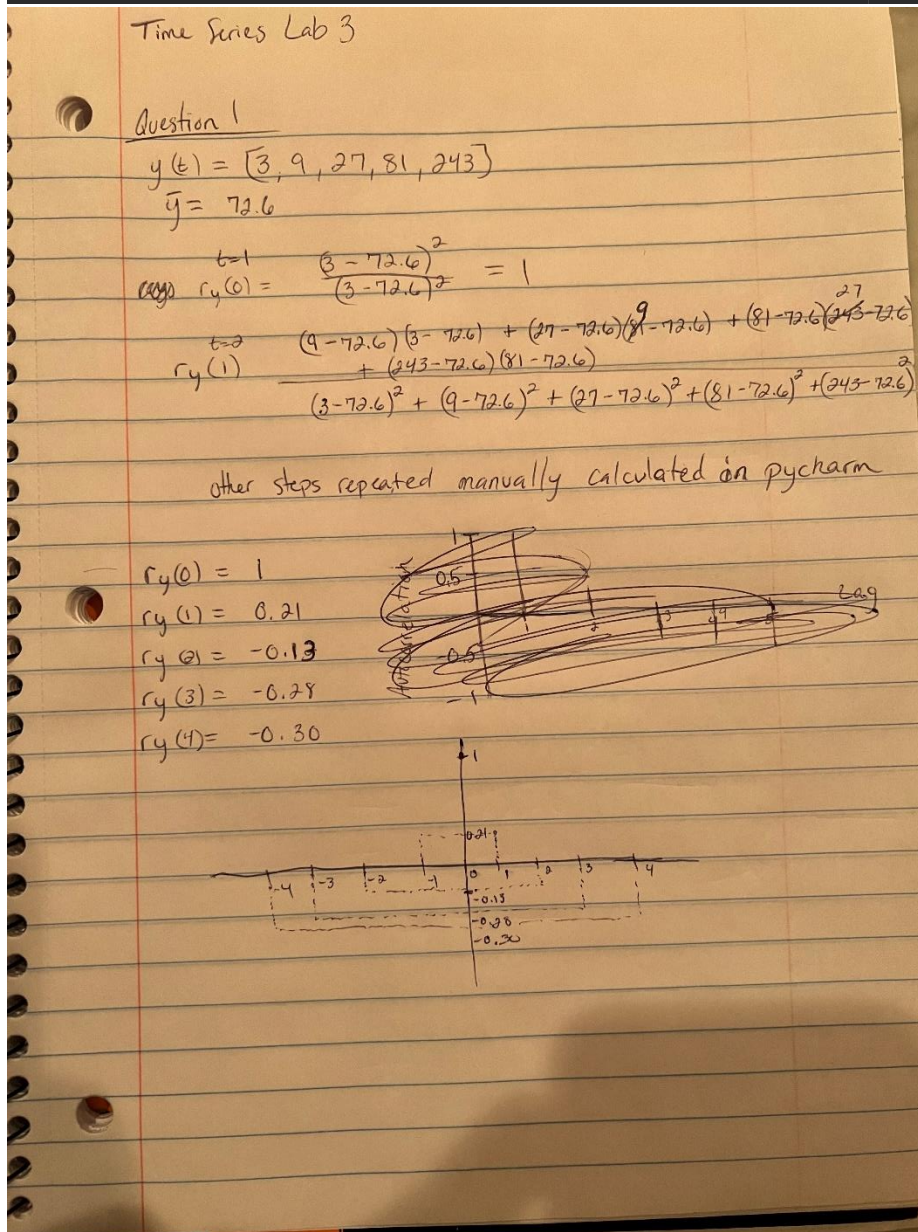 Time Series Lab 3
Question 1
y(t) = [3, 9, 27, 81, 243]
ȳ = 72.6
t=1
ry(0) = (3 - 72.6)² / (3 - 72.6)² = 1
t=2
ry(1) (9 - 72.6)(3 - 72.6) + (27 - 72.6)(9 - 72.6) + (81 - 72.6)(27 - 72.6)
+ (243 - 72.6)(81 - 72.6)
(3 - 72.6)² + (9 - 72.6)² + (27 - 72.6)² + (81 - 72.6)² + (243 - 72.6)²
other steps repeated manually calculated on pycharm
ry(0) = 1
ry(1) = 0.21
ry(2) = -0.13
ry(3) = -0.28
ry(4) = -0.30
1
0.5
-0.5
-1
Autocorrelation
1 2 3 4 5
Lag
1
0.21
-4 -3 -2 -1 0 1 2 3 4
-0.13
-0.28
-0.30